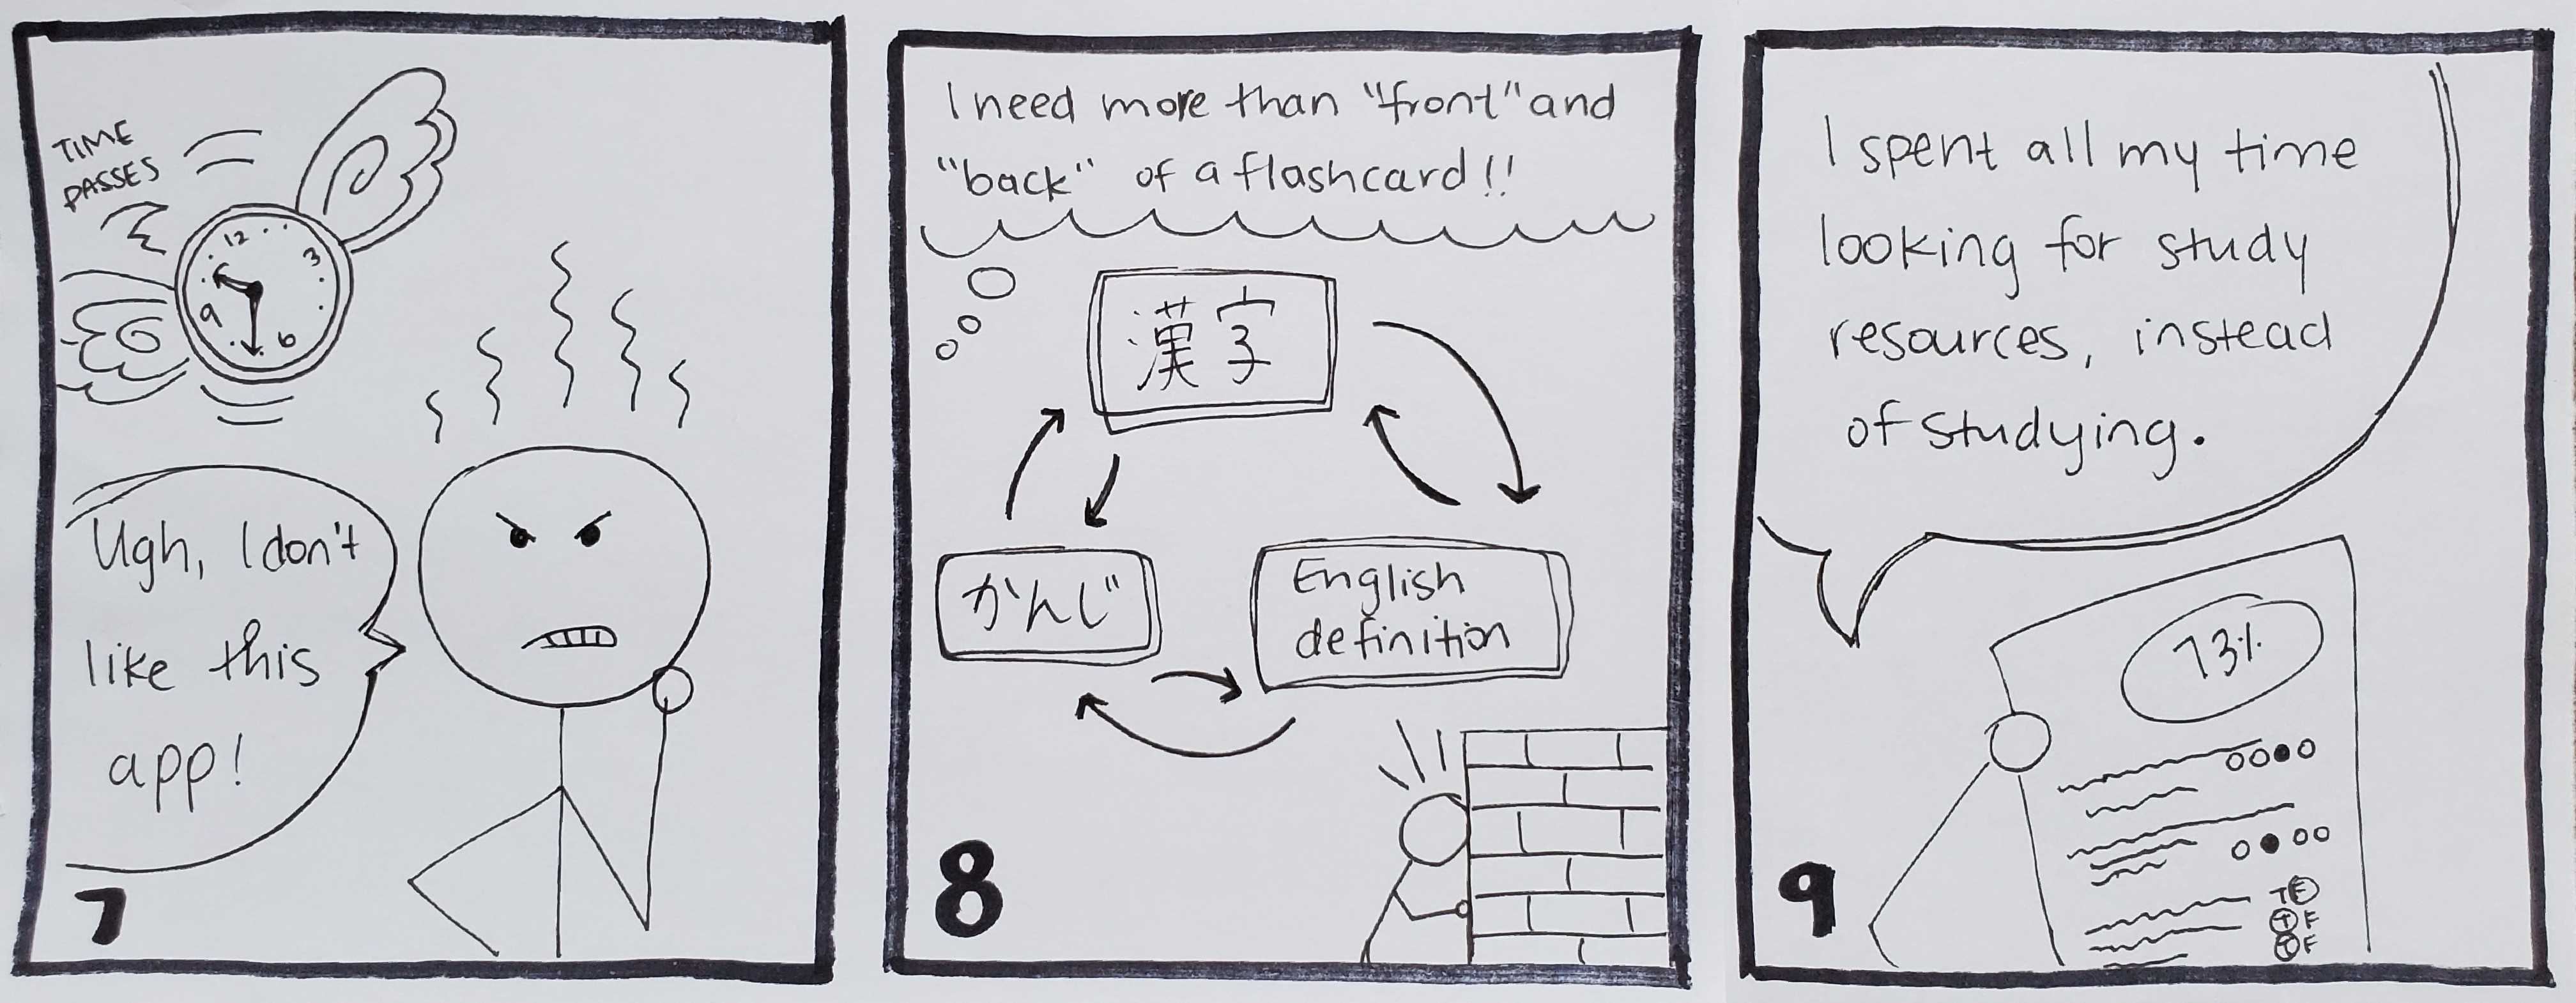 TIME
PASSES
12
3
6
9
Ugh, I don't
like this
app!
7
I need more than "front" and
"back" of a flashcard!!
漢字
かんじ
English
definition
8
I spent all my time
looking for study
resources, instead
of studying.
73%
T F
T F
T F
9